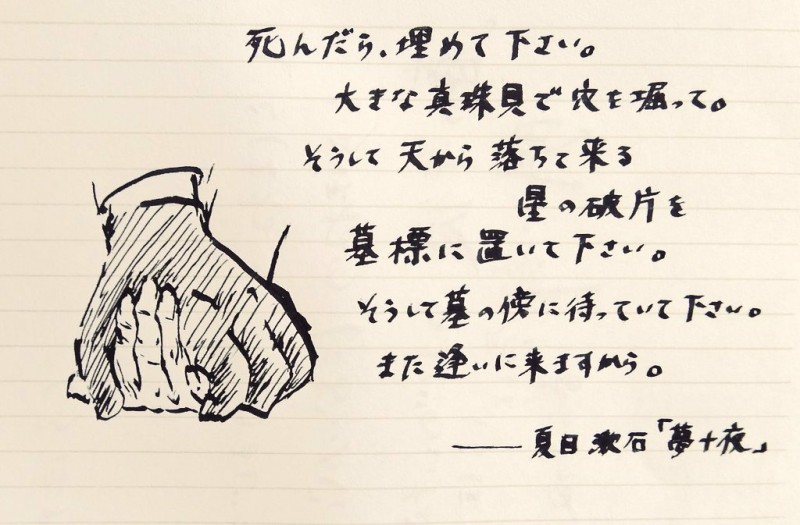 死んだら、埋めて下さい。
大きな真珠貝で穴を掘って。
そうして天から落ちて来る
星の破片を
墓標に置いて下さい。
そうして墓の傍に待っていて下さい。
また逢いに来ますから。
——夏目漱石「夢十夜」